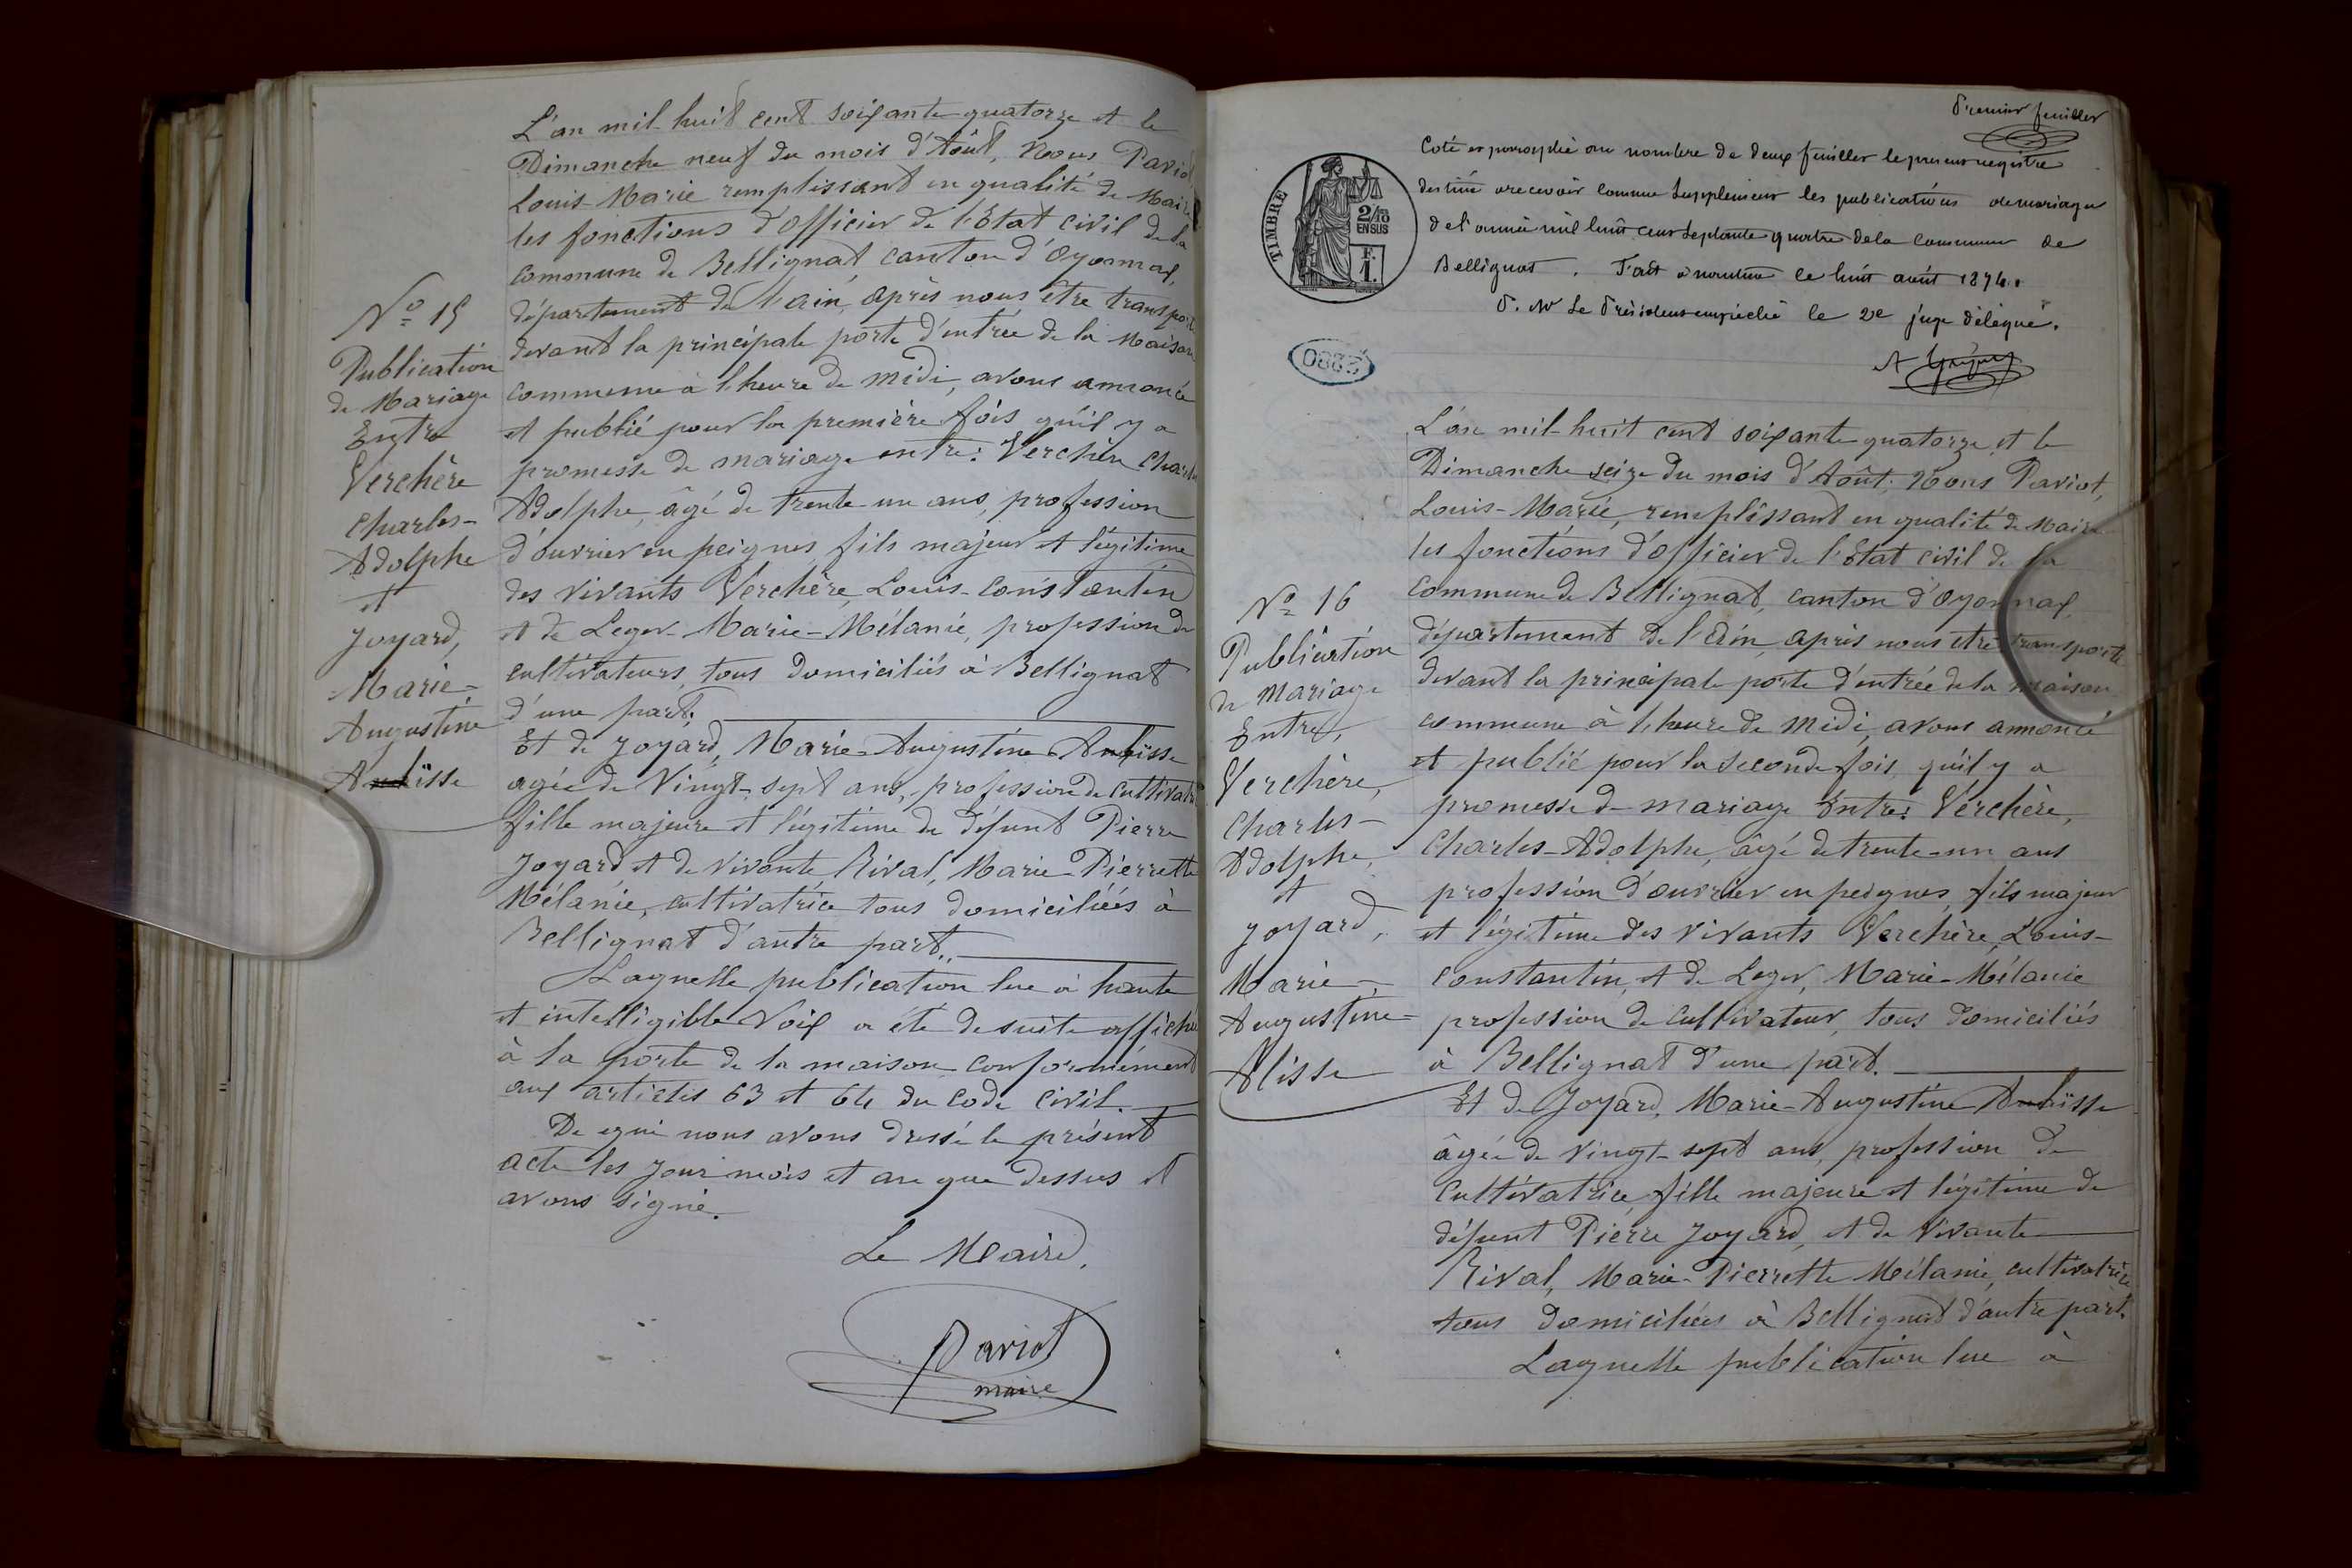 L'an mil huit cent soixante quatorze et le
Dimanche neuf du mois d'Août, Nous Paviot
Louis-Marie remplissant en qualité de Maire
les fonctions d'Officier de l'Etat civil de la
commune de Bellignat canton d'Oyonnax,
département de l'ain, après nous être transporté
devant la principale porte d'entrée de la Maison
commune à l'heure de midi, avons annoncé
et publié pour la première fois qu'il y a
promesse de mariage entre: Verchère Charles
Adolphe, âgé de trente-un ans, profession
d'ouvrier en peignes, fils majeur et légitime
des vivants Verchère, Louis-Constantin
et de Leger-Marie-Mélanie, profession de
cultivateurs, tous domiciliés à Bellignat
d'une part.
Et de Joyard, Marie-Augustine
agée de Vingt-sept ans, profession de cultivatrice
fille majeure et légitime de défunt Pierre
Joyard et de vivante Rival, Marie-Pierrette
Mélanie, cultivatrice tous domiciliées à
Bellignat d'autre part.
Laquelle publication lue à haute
et intelligible voix a été de suite affichée
à la porte de la maison conformément
aux articles 63 et 64 du code civil.
De qui nous avons dressé le présent
acte les jour mois et an que dessus et
avons signé.
Le Maire,
Paviot
maire
N° 15
Publication
de Mariage
Entre
Verchère
Charles-
Adolphe
et
Joyard,
Marie-
Augustine
Premier feuillet
Coté et paraphé au nombre de deux feuilles le présent registre
destiné a recevoir comme Supplément les publications de mariage
de l'année mil huit cent septante quatre de la commune de
Bellignat. Fait a nantua le huit août 1874.
P. Mr Le Président empêché le 2e juge délégué.
TIMBRE
2/10
EN SUS
F.
1.
0883
L'an mil-huit cent soixante quatorze et le
Dimanche seize du mois d'Août, Nous Paviot,
Louis-Marie, remplissant en qualité de Maire
les fonctions d'Officier de l'Etat civil de la
commune de Bellignat, canton d'Oyonnax,
département de l'Ain, après nous être transporté
devant la principale porte d'entrée de la maison
commune à l'heure de midi, avons annoncé
et publié pour la seconde fois, qu'il y a
promesse de mariage Entre: Verchère,
Charles-Adolphe, âgé de trente-un ans
profession d'ouvrier en peignes, fils majeur
et légitime des vivants Verchère, Louis-
Constantin, et de Leger, Marie-Mélanie
profession de cultivateur, tous domiciliés
à Bellignat d'une part.
Et de Joyard, Marie-Augustine
âgée de vingt-sept ans, profession de
Cultivatrice, fille majeure et légitime de
défunt Pierre Joyard, et de vivante
Rival, Marie-Pierrette Mélanie, cultivatrice
tous domiciliées à Bellignat d'autre part.
Laquelle publication lue à
N° 16
Publication
de Mariage
Entre,
Verchère,
Charles-
Adolphe,
et
Joyard,
Marie-
Augustine-
Alisse